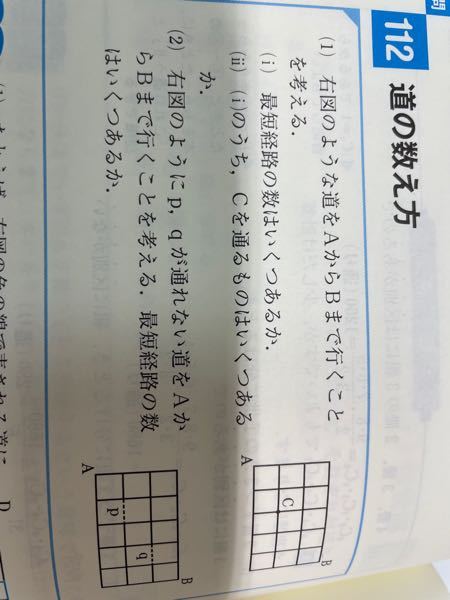 問
112
道の数え方
(1) 右図のような道をAからBまで行くこと
を考える.
(i) 最短経路の数はいくつあるか.
(ii) (i)のうち, Cを通るものはいくつある
か.
A
B
C
(2) 右図のようにp, qが通れない道をAか
らBまで行くことを考える. 最短経路の数
はいくつあるか.
A
B
p
q
D